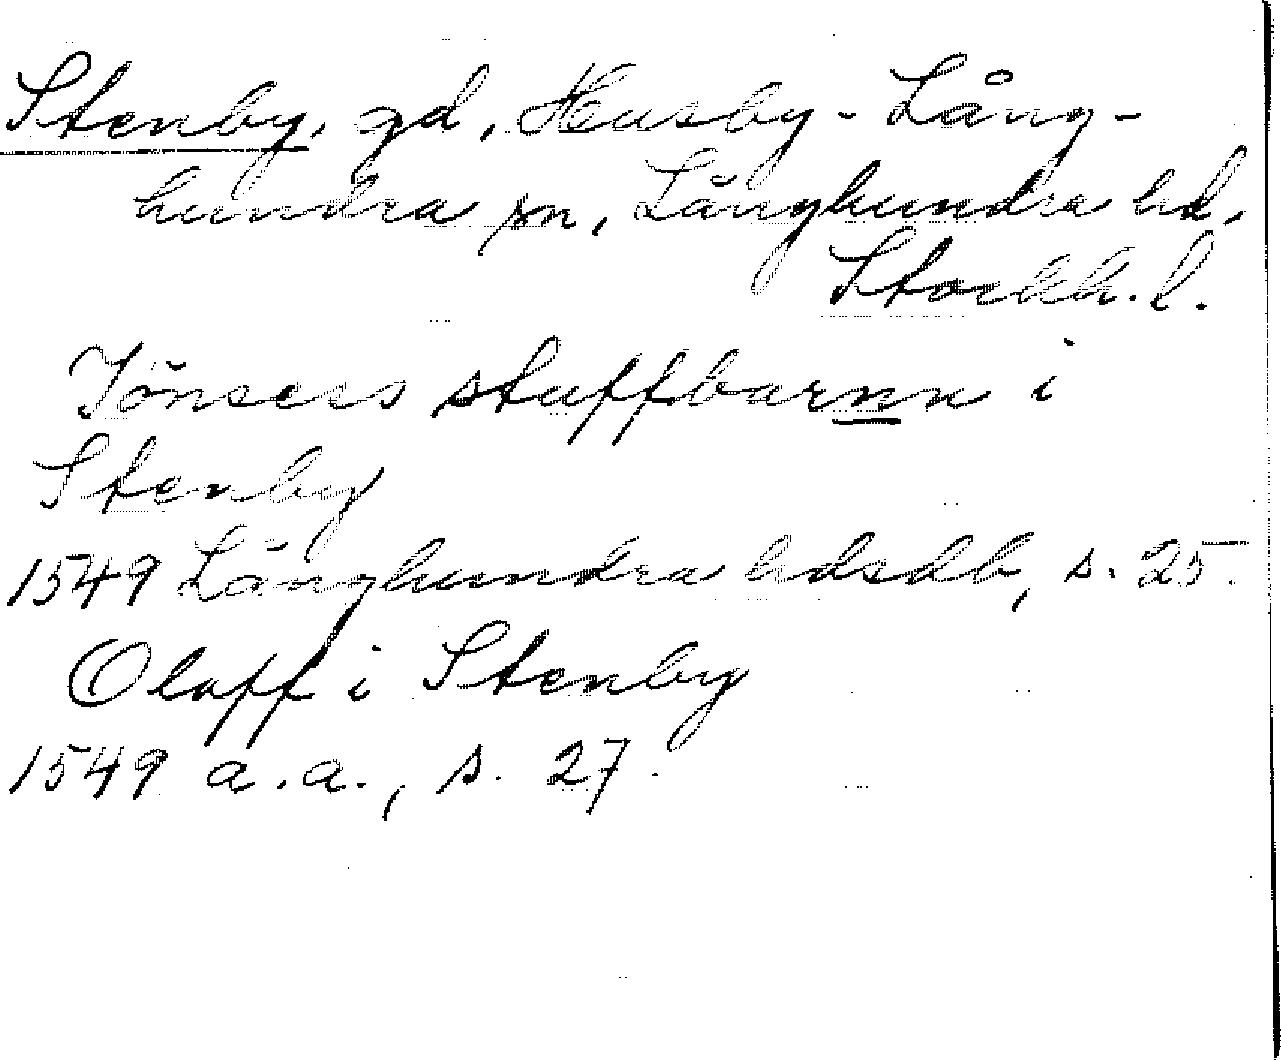 Stenby, gd, Husby-Lång-
hundra sn, Långhundra hd,
Stockh. l.
Jönsess stuffbarnn i
Stenby
1549 Långhundra hdsdb, s. 25.
Olaff i Stenby
1549 a.a., s. 27.